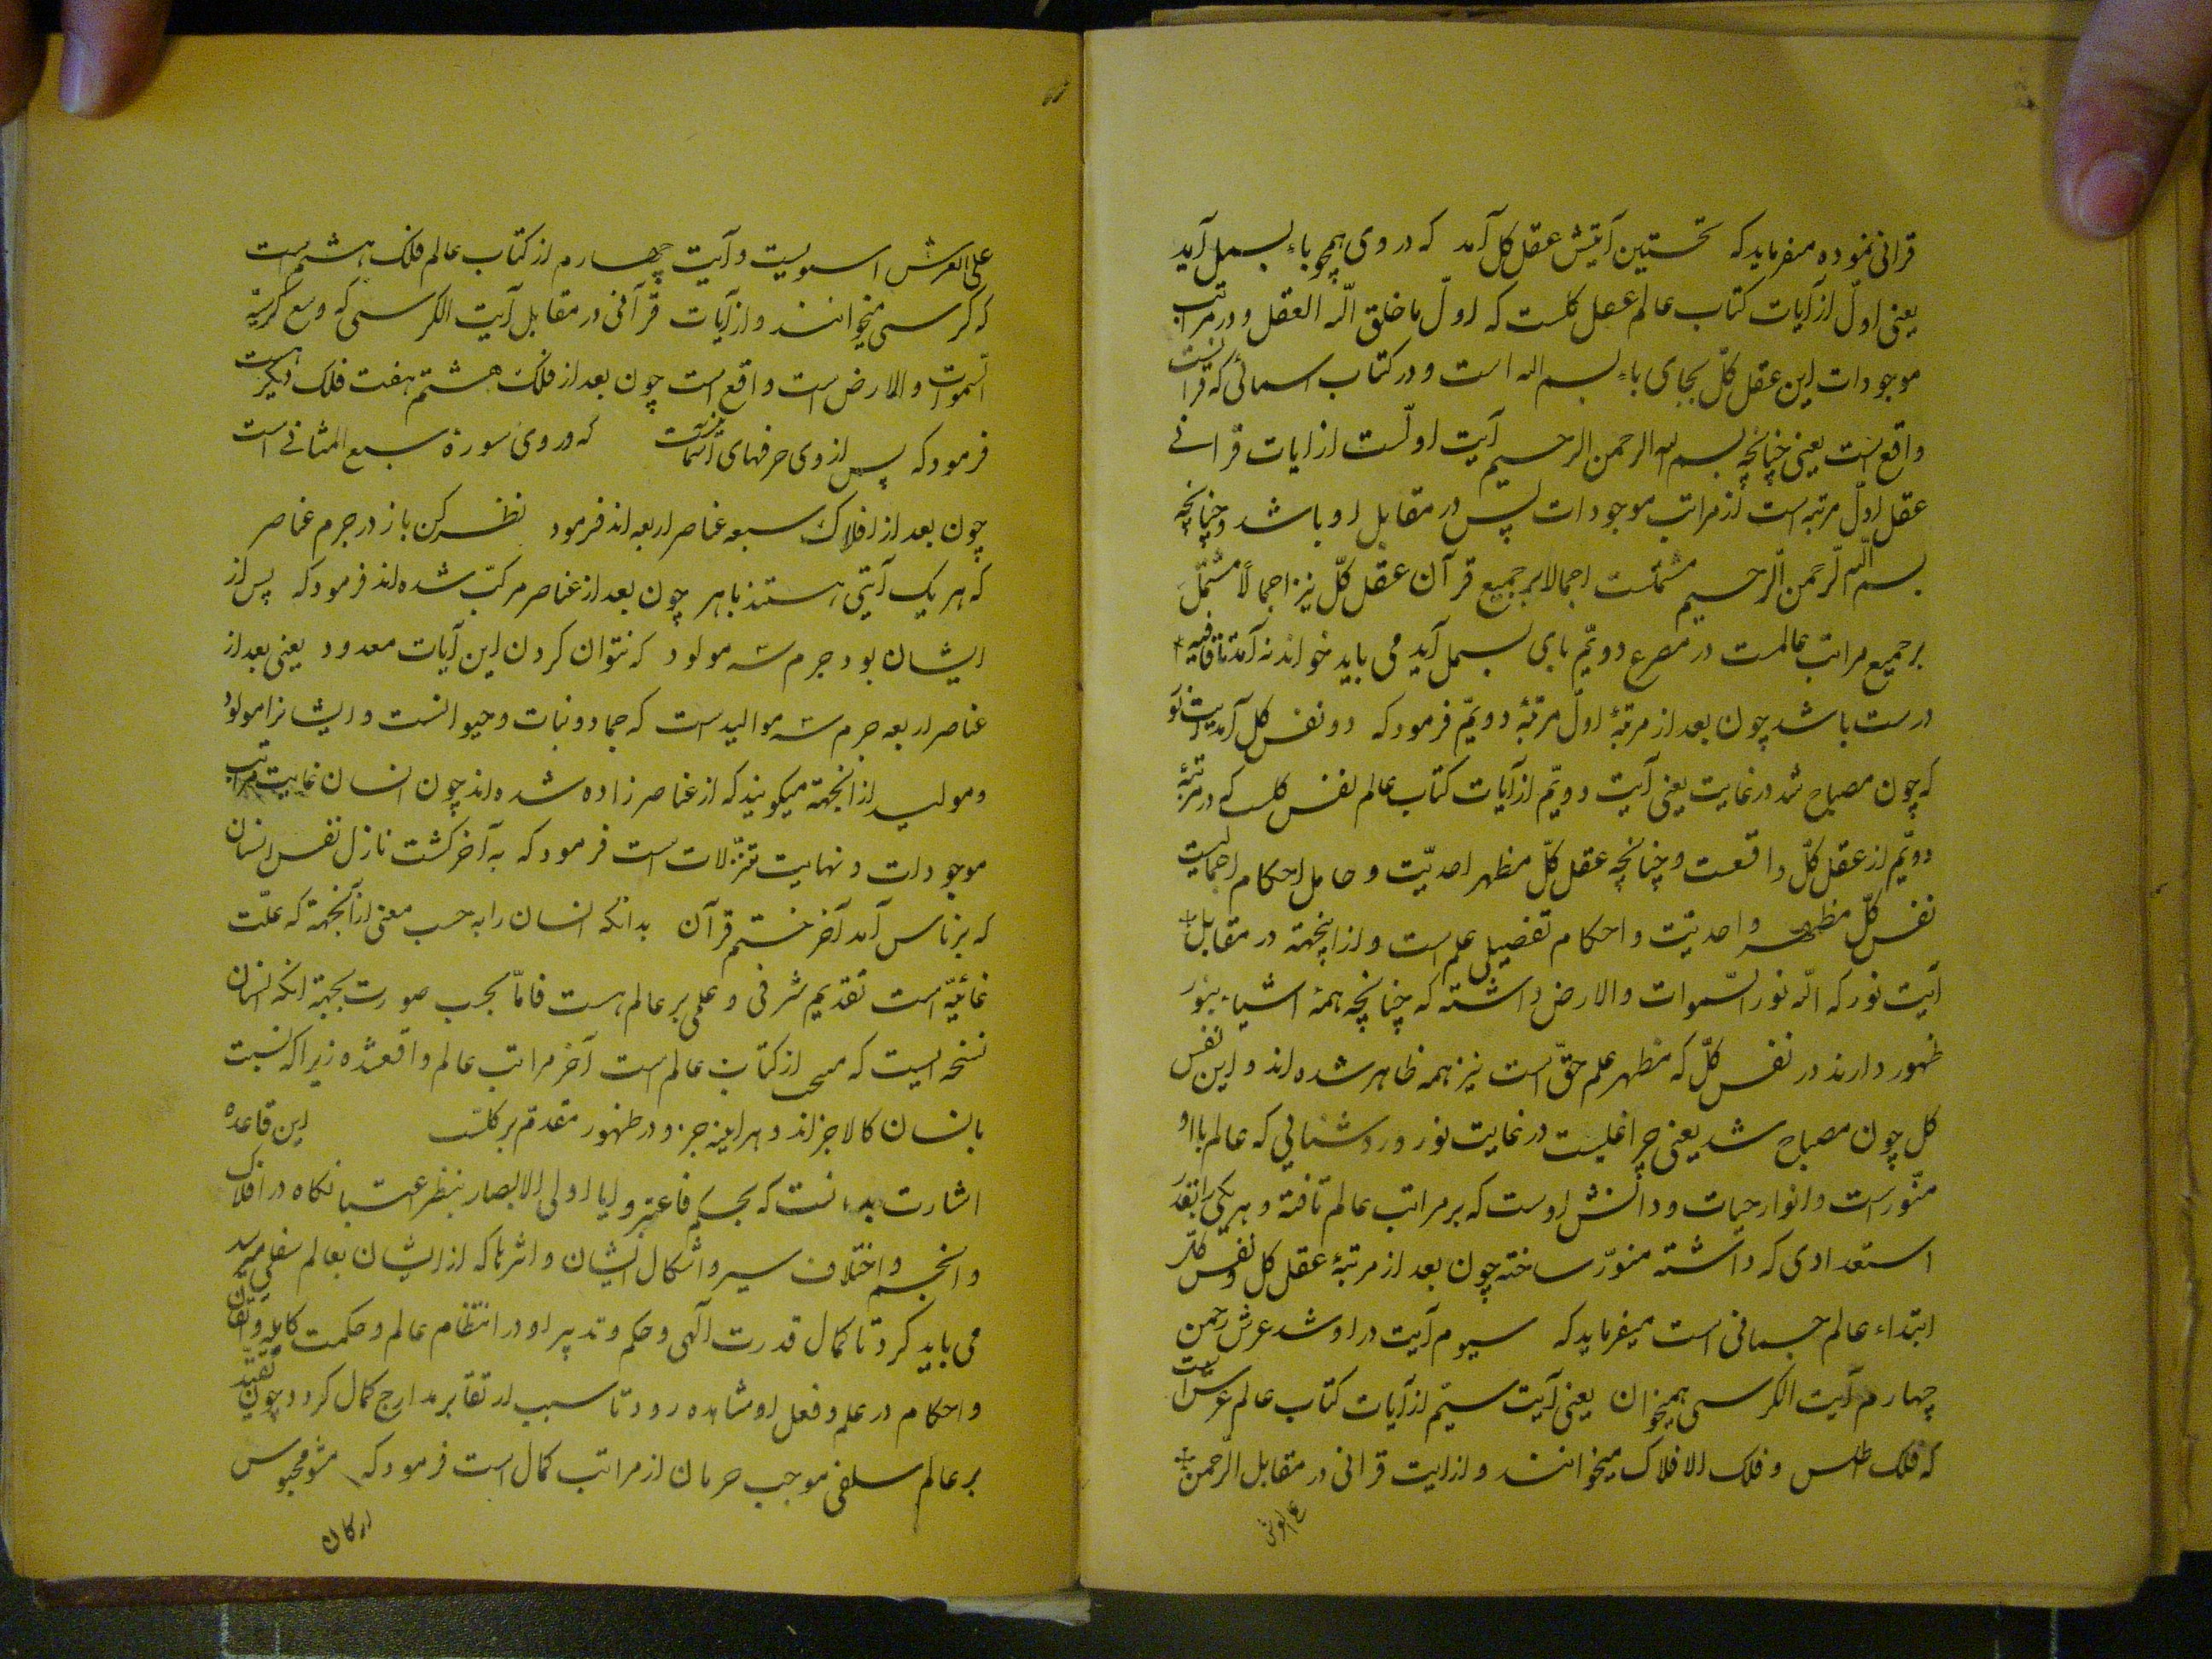 قرانی نموده میفرماید که نخستین آیتش عقل کل آمد که در وی همچو باء بسمل آمد
یعنی اول از آیات کتاب عالم عقل کلست که اول ما خلق الله العقل و در مراتب
موجودات این عقل کل بجای باء بسم الله است و در کتاب اسمائی که قرانست
واقع است یعنی چنانچه بسم الله الرحمن الرحیم آیت اولست از ایات قرانی
عقل اول مرتبه است از مراتب موجودات پس در مقابل او باشد و چنانچه
بسم الله الرحمن الرحیم مشتملست اجمالا بر جمیع قرآن عقل کل نیز اجمالاً مشتمل
بر جمیع مراتب عالمست در مصرع دویّم بای بسمل آید می باید خواند نه آمد تا قافیه
درست باشد چون بعد از مرتبهٔ اول مرتبهٔ دویّم فرمود که دو نفس کل آمد آیت نور
که چون مصباح شد در غایت یعنی آیت دویّم از آیات کتاب عالم نفس کلست که در مرتبهٔ
دویّم از عقل کل واقعست و چنانچه عقل کل مظهر احدیّت و حامل احکام اجمالیست
نفس کلّ مظهر واحدیّت و احکام تفصیلی علم است و از اینجهة در مقابل
آیت نور که الله نور السّموات والارض داشته که چنانچه همهٔ اشیاء بنور
ظهور دارند در نفس کلّ که مظهر علم حقّ است نیز همه ظاهر شده اند و این نفس
کل چون مصباح شد یعنی چراغیست در غایت نور و روشنایی که عالم با او
منوّر است و انوار حیات و دانش اوست که بر مراتب عالم تافته و هر یکی را بقدر
استعدادی که داشته منوّر ساخته چون بعد از مرتبهٔ عقل کل و نفس کل
ابتداء عالم جسمانی است میفرماید که سیوم آیت در او شد عرش رحمن
چهارم آیت الکرسی همیخوان یعنی آیت سیّم از آیات کتاب عالم عرش است
که فلک اطلس و فلک الافلاک میخوانند و از ایت قرانی در مقابل الرّحمن
علی العرش
علی العرش استویست و آیت چهارم از کتاب عالم فلک هشتم است
که کرسی میخوانند و از آیات قرآنی در مقابل آیت الکرسی که وسع کرسیه
السّموات والارض است واقع است چون بعد از فلک هشتم هفت فلک دیگر هست
فرمود که پس از وی جرفهای آسمانست که در وی سورهٔ سبع المثانی است
چون بعد از افلاک سبعه عناصر اربعه اند فرمود نظر کن باز در جرم عناصر
که هر یک آیتی هستند باهر چون بعد از عناصر مرکّب شده اند فرمود که پس از
ایشان بود جرم سه مولود که نتوان کردن این آیات معدود یعنی بعد از
عناصر اربعه جرم سه موالید است که جماد و نبات و حیوانست و ایشانرا مولود
و موالید از انجهة میکویند که از عناصر زاده شده اند چون انسان غایت مراتب
موجودات و نهایت تنزّلات است فرمود که به آخر کشت نازل نفس انسان
که بر ناس آمد آخر ختم قرآن بدانکه انسان را به حسب معنی از آنجهة که علّت
غائیّه است تقدیم شرفی و علمی بر عالم هست فامّا بحسب صورت بجهة انکه انسان
نسخه ایست که از کتاب عالم است آخر مراتب عالم واقعشده زیرا که نسبت
بانسان کالاجزاند و هراینه جزو در ظهور مقدم بر کلست این قاعده
اشارت بدانست که بحکم فاعتبروا یا اولی الابصار بنظر عبت بانکاه در افلاک
و انجم و اختلاف سیر و اشکال ایشان و اثرها که از ایشان بعالم سفلی میرسد
می باید کرد تا کمال قدرت آلهی و حکم و تدبیر او در انتظام عالم و حکمت کامله و اتقان
و احکام در علم و فعل او مشاهده رود تا سبب ارتقا بر مدارج کمال کردد چون تقیّد
بر عالم سلفی موجب حرمان از مراتب کمال است فرمود که مشو محبوس
ارکان